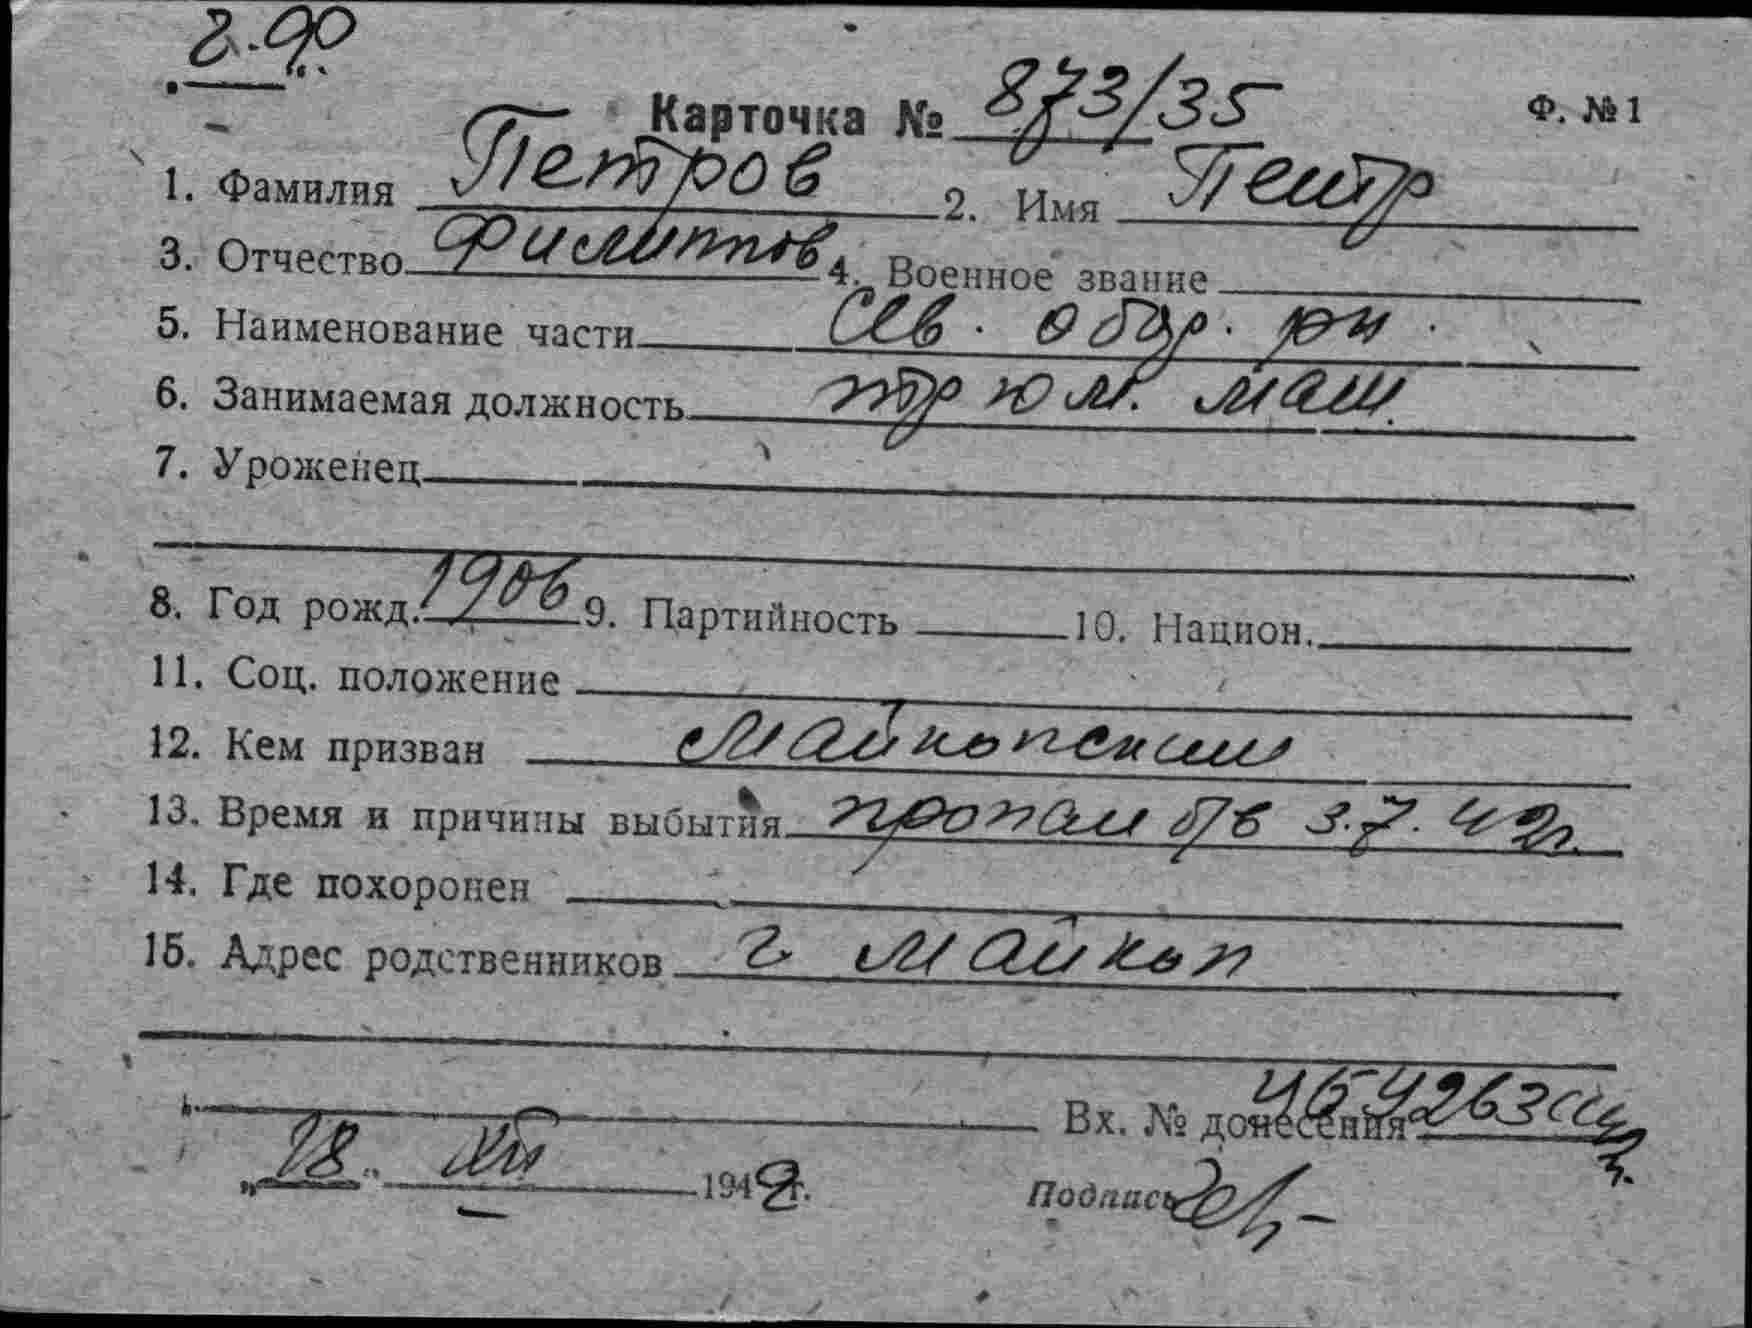 Карточка № 873/35 Ф. № 1
1. Фамилия Петров 2. Имя Петр
3. Отчество Филиппов 4. Военное звание
5. Наименование части Сев. обор. рн.
6. Занимаемая должность трюм. маш.
7. Уроженец
8. Год рожд. 1906 9. Партийность 10. Национ.
11. Соц. положение
12. Кем призван Майкопским
13. Время и причины выбытия пропал б/в 3.7.42г.
14. Где похоронен
15. Адрес родственников г Майкоп
Вх. № донесения
„18“ XII 1948г. Подпись